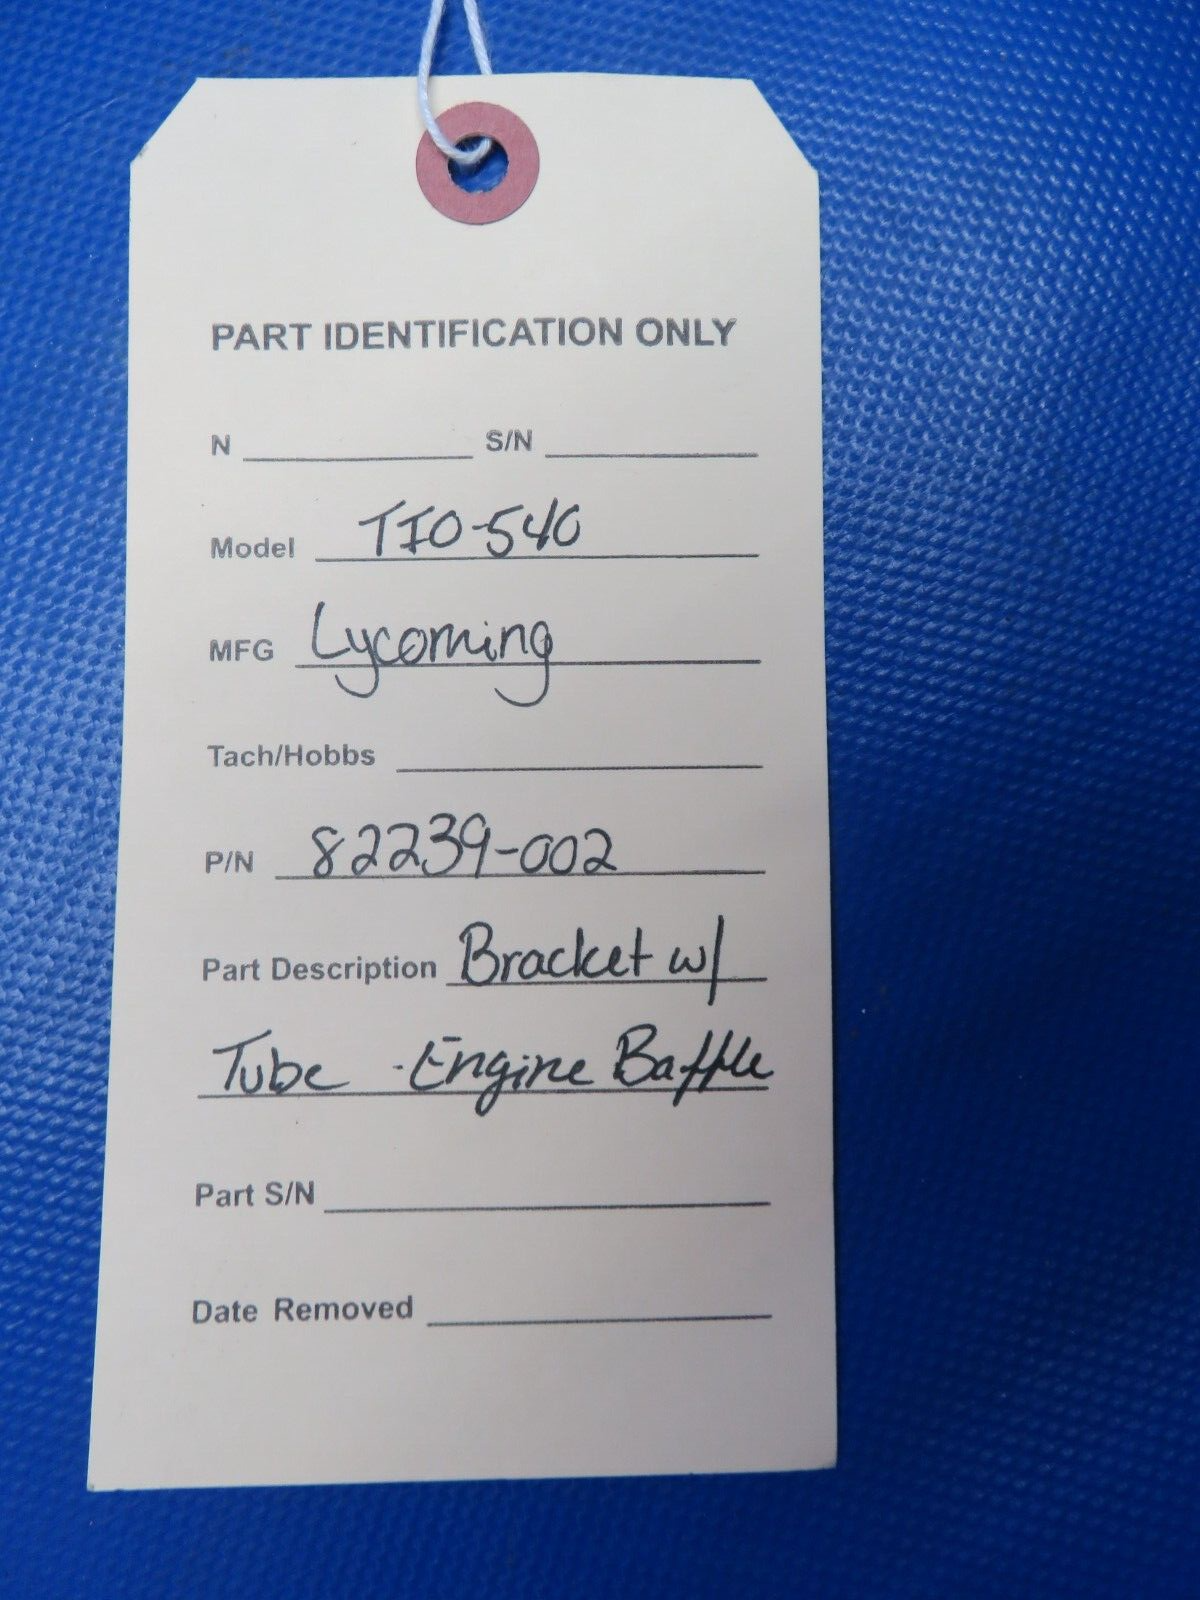 PART IDENTIFICATION ONLY
N S/N
Model TIO-540
MFG Lycoming
Tach/Hobbs
P/N 82239-002
Part Description Bracket w/
Tube - Engine Baffle
Part S/N
Date Removed